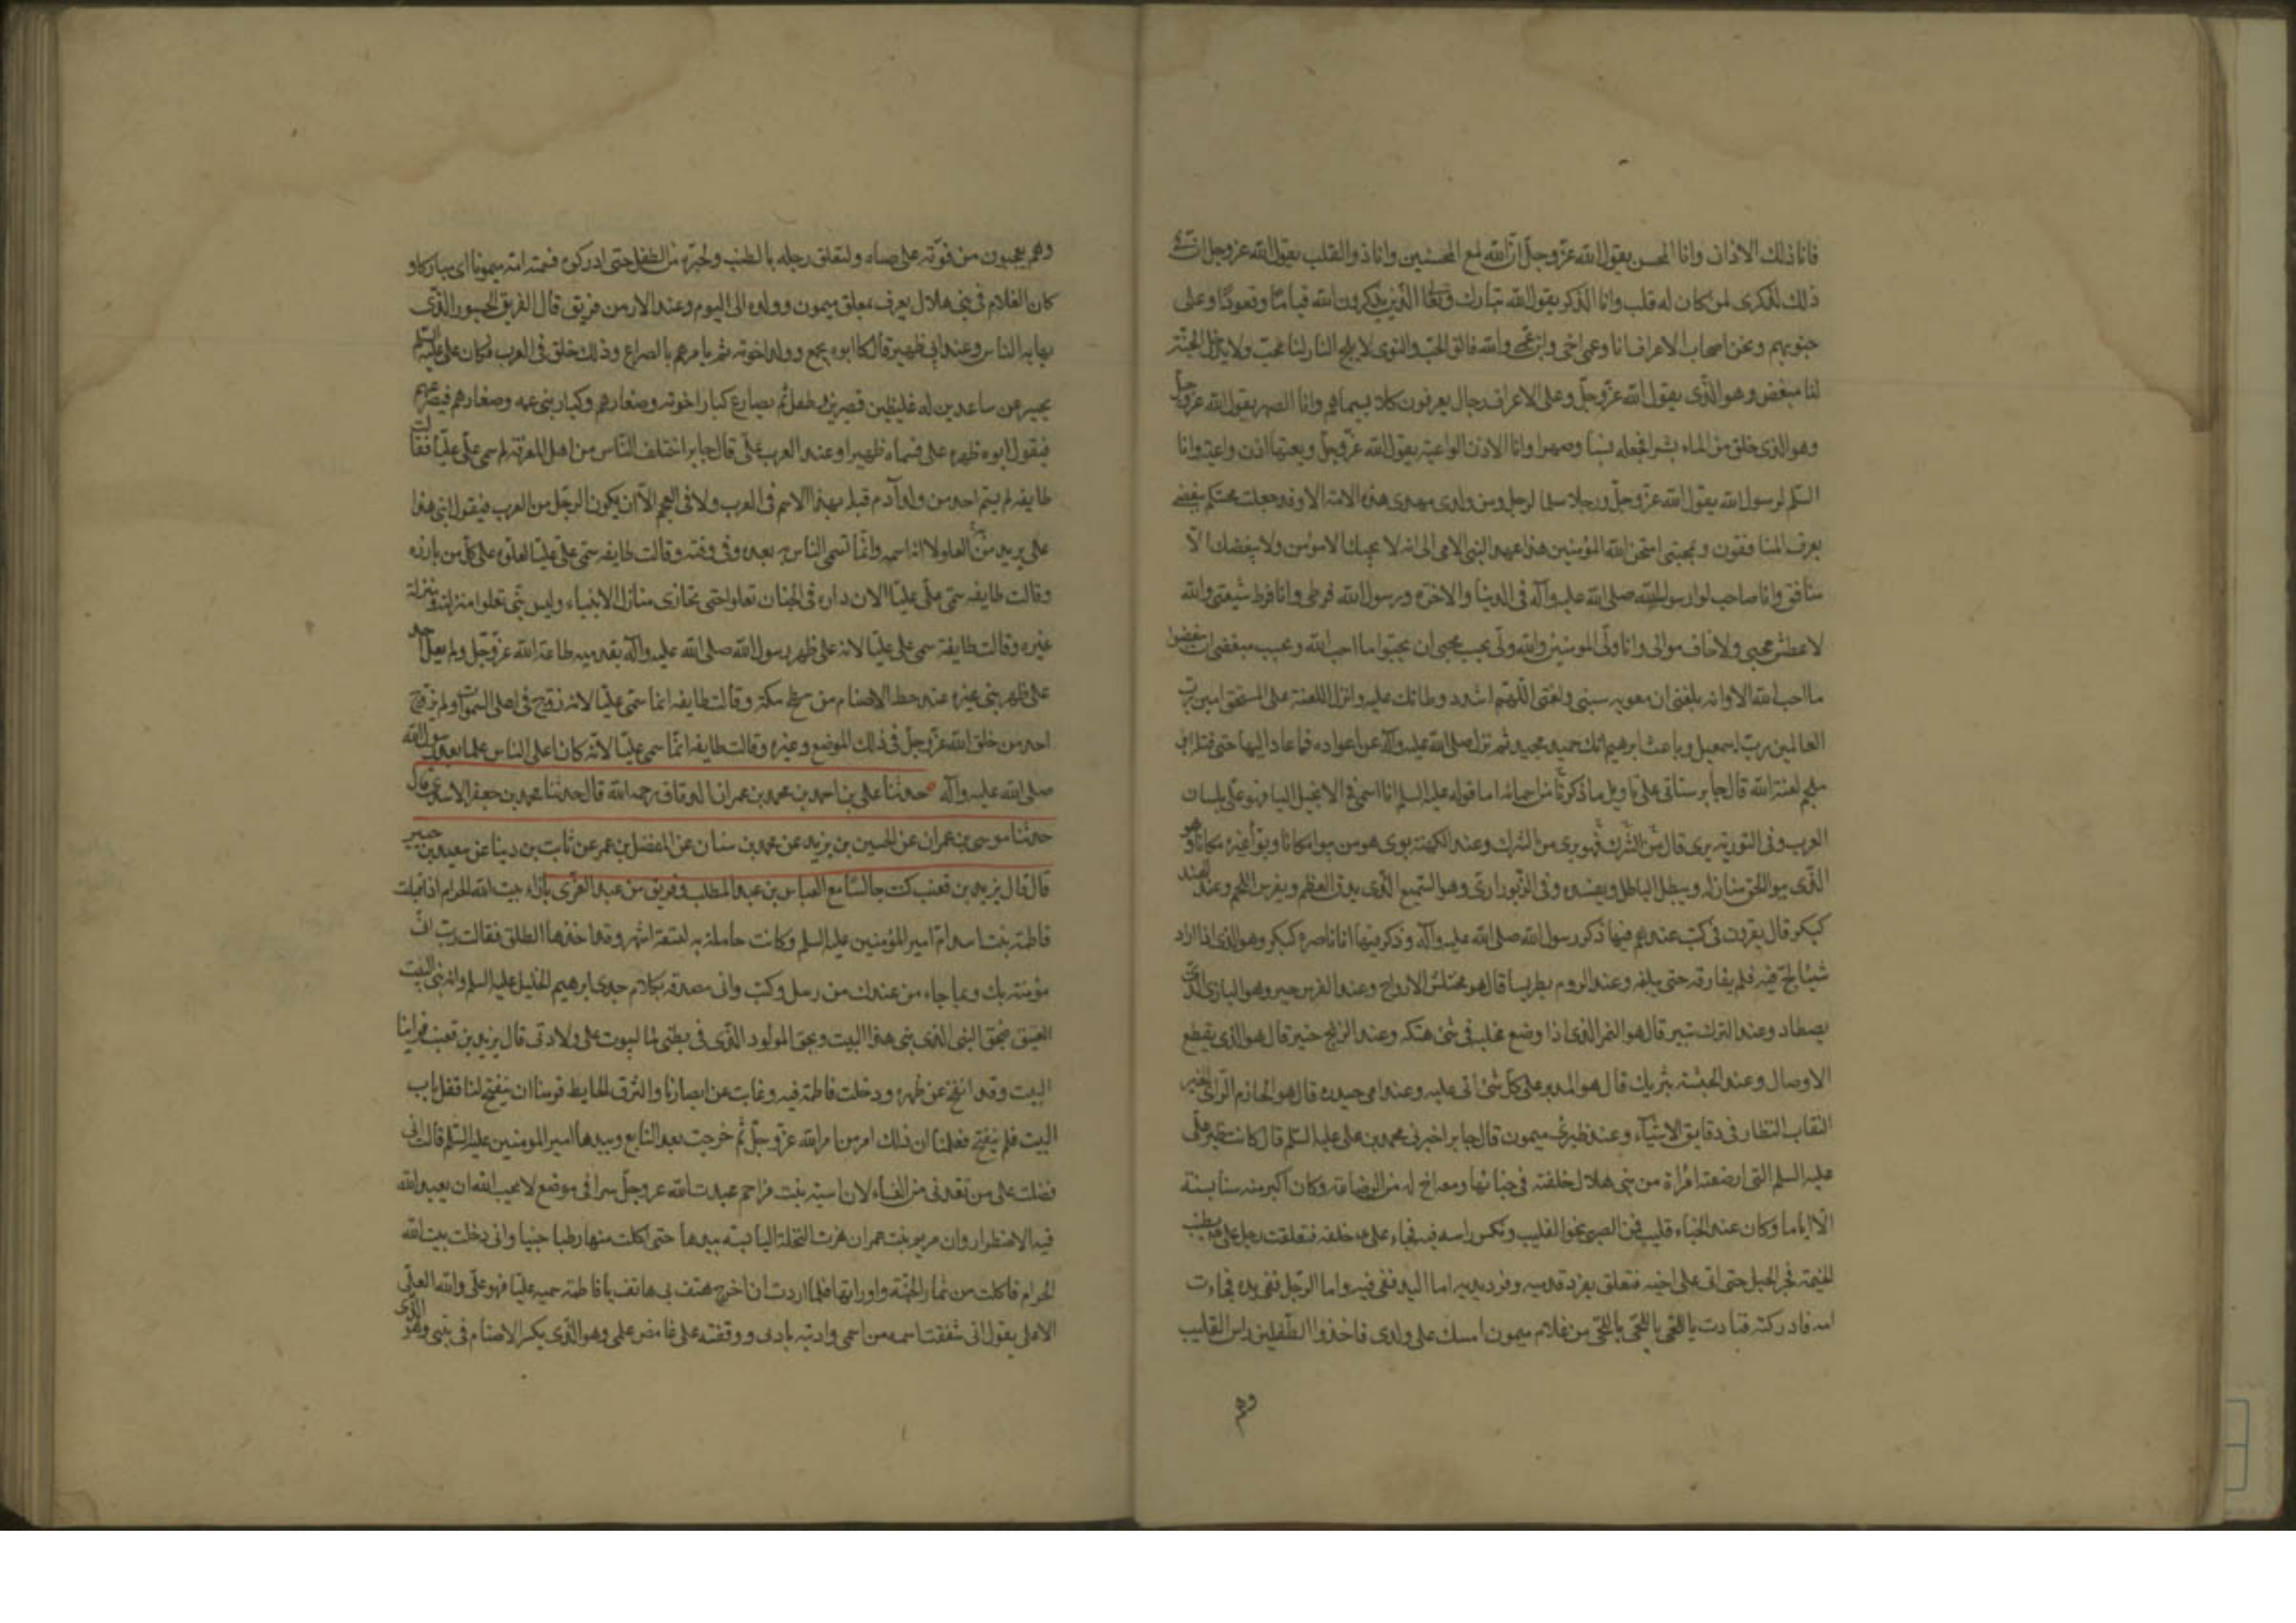 فانا ذلك الاذان وانا المحسن يقول الله عز وجل ان الله لمع المحسنين وانا ذو القلب يقول الله عز وجل ان في
ذلك لذكرى لمن كان له قلب وانا الذاكر يقول الله تبارك وتعالى الذين يذكرون الله قياما وقعودا وعلى
جنوبهم ونحن اصحاب الاعراف انا وعمى واخى وابن عمى والله فالق الحب والنوى لا يلج النار لنا محب ولا يدخل الجنة
لنا مبغض وهو الذى يقول الله عز وجل وعلى الاعراف رجال يعرفون كلا بسيماهم وانا الصهر يقول الله عز وجل
وهو الذى خلق من الماء بشرا فجعله نسبا وصهرا وانا الاذن الواعية يقول الله عز وجل وتعيها اذن واعية وانا
السلم لرسول الله يقول الله عز وجل ورجلا سلما لرجل ومن ولدى مهدى هذه الامة الا وقد جعلت محنتكم ببغضى
يعرف المنافقون وبمحبتى امتحن الله المؤمنين هذا عهد النبى الامى الى انه لا يحبك الا مؤمن ولا يبغضك الا
منافق وانا صاحب لواء رسول الله صلى الله عليه وآله فى الدنيا والاخرة ورسول الله فرطى وانا فرط شيعتى والله
لا عطش محبى ولا خاف موالى وانا ولى المومنين والله ولى يحب محبى ان يحبوا ما احب الله ويحب مبغضى ان يبغضوا
ما احب الله الا وانه بلغنى ان معويه سبنى ولعننى اللهم اشدد وطاتك عليه وانزل اللعنة على المستحق امين رب
العالمين رب اسمعيل وباعث ابرهيم انك حميد مجيد ثم نزل صلى الله عليه وآله عن اعواده فما عاد اليها حتى قتله ابن
ملجم لعنه الله قال جابر سناتى على تاويل ما ذكرنا من اسمائه اما قوله عليه السلم انا اسمى فى الانجيل اليا فهو على بلسان
العرب وفى التورية برى قال برى من الشرك وعند الكهنة بوى هو من بوا مكانا وبوا غيره مكانا وهو
الذى يبوا الحق منازله ويبطل الباطل ويفسده وفى الزبور ارى وهو السبع الذى يدق العظم ويفرس اللحم وعند الهند
كبكر قال يقرون فى كتب عندهم فيها ذكر رسول الله صلى الله عليه وآله وذكر فيها ان ناصره كبكر وهو الذى اذا اراد
شيئا لج فيه فلم يفارقه حتى يبلغه وعند الروم بطريسا قال هو مختلس الارواح وعند الفرس حبر وهو البازى الذى
يصطاد وعند الترك تبير قال هو النمر الذى اذا وضع مخلبه فى شئ هتكه وعند الزنج حيتر قال هو الذى يقطع
الاوصال وعند الحبشة بثريك قال هو المدبر على كل شئ اتى عليه وعند امى حيدره قال هو الحازم الراى الخبير
النقاب النظار فى دقايق الاشياء وعند ظئرى ميمون قال جابر اخبرنى محمد بن على عليه السلم قال كانت ظئر على
عليه السلم التى ارضعته امراة من بنى هلال خلفته فى خبائها ومعه اخ له من الرضاعة وكان اكبر منه سنا بسنة
الا اياما وكان عند الخباء قليب فمر الصبى نحو القليب ونكس راسه فيه فجاء على خلفه فتعلقت رجل على بطنب
الخيمة فجر الحبل حتى اتى على اخيه فتعلق بفرد قدميه وفرد يديه اما اليد ففى فيه واما الرجل ففى يده فجاءت
امه فادركته فنادت ياللحى ياللحى ياللحى من غلام ميمون امسك على ولدى فاخذوا الطفلين من راس القليب
وهم
وهم يعجبون من قوته على صباه ولتعلق رجله بالطنب ولجره من الطفل حتى ادركوه فسمته امه ميمونا اى مباركا و
كان الغلام فى بنى هلال يعرف بمعلق ميمون وولده الى اليوم وعند الارمن فريق قال الفريق الجسور الذى
يهابه الناس وعند ابى ظهير قال كان ابوه يجمع ولده وولد اخوته ثم يامرهم بالصراع وذلك خلق فى العرب فكان على عليه السلم
يحسر عن ساعدين له غليظين قصيرين وهو طفل ثم يصارع كبار اخوته وصغارهم وكبار بنى عمه وصغارهم فيصرعهم
فيقول ابوه ظهر على فسماه ظهيرا وعند العرب على قال جابر اختلف الناس من اهل المعرفة لم سمى على عليا فقالت
طايفه لم يسم احد من ولد آدم قبله بهذا الاسم فى العرب ولا فى العجم الا ان يكون الرجل من العرب فيقول ابنى هذا
على يريد من العلو لا انه اسمه وانما تسمى الناس به بعده وفى وقته وقالت طايفه سمى على عليا لعلوه على كل من بارزه
وقالت طايفه سمى على عليا لان داره فى الجنان تعلو حتى تحاذى منازل الانبياء وليس نبى تعلو منزلته منزلة
غيره وقالت طايفة سمى على عليا لانه على ظهر رسول الله صلى الله عليه وآله بقدميه طاعة الله عز وجل ولم يعل احد
على ظهر نبى غيره عند حط الاصنام من سطح مكة وقالت طايفه انما سمى عليا لانه زوج فى اعلى السموات ولم يزوج
احد من خلق الله عز وجل فى ذلك الموضع وغيره وقالت طايفه انما سمى عليا لانه كان اعلى الناس علما بعد رسول الله
صلى الله عليه وآله حدثنا على بن احمد بن محمد بن عمران الدقاق رحمه الله قال حدثنا محمد بن جعفر الاسدى قال
حدثنا موسى بن عمران عن الحسين بن يزيد عن محمد بن سنان عن المفضل بن عمر عن ثابت بن دينا عن سعيد بن جبير
قال قال يزيد بن قعنب كنت جالسا مع العباس بن عبد المطلب وفريق من عبد العزى بازاء بيت الله الحرام اذ اقبلت
فاطمة بنت اسد ام امير المؤمنين عليه السلم وكانت حاملة به لتسعة اشهر وقد اخذها الطلق فقالت رب انى
مؤمنة بك وبما جاء من عندك من رسل وكتب وانى مصدقة بكلام جدى ابرهيم الخليل عليه السلم وانه بنى البيت
العتيق فبحق النبى الذى بنى هذا البيت وبحق المولود الذى فى بطنى لما يسرت على ولادتى قال يزيد بن قعنب فراينا
البيت وقد انفتح عن ظهره ودخلت فاطمة فيه وغابت عن ابصارنا والتزق الحايط فرمنا ان ينفتح لنا قفل باب
البيت فلم ينفتح فعلمنا ان ذلك امر من امر الله عز وجل ثم خرجت بعد الرابع وبيدها امير المومنين عليه السلم قالت انى
فضلت على من تقدمنى من النساء لان اسية بنت مزاحم عبدت الله عز وجل سرا فى موضع لا يحب الله ان يعبد الله
فيه الا اضطرار وان مريم بنت عمران هزت النخلة اليابسة بيدها حتى اكلت منها رطبا جنيا وانى دخلت بيت الله
الحرام فاكلت من ثمار الجنة واوراقها فلما اردت ان اخرج هتف بى هاتف يا فاطمة سميه عليا فهو على والله العلى
الاعلى يقول انى شققت اسمه من اسمى وادبته بادبى ووقفته على غامض علمى وهو الذى يكسر الاصنام فى بيتى وهو الذى